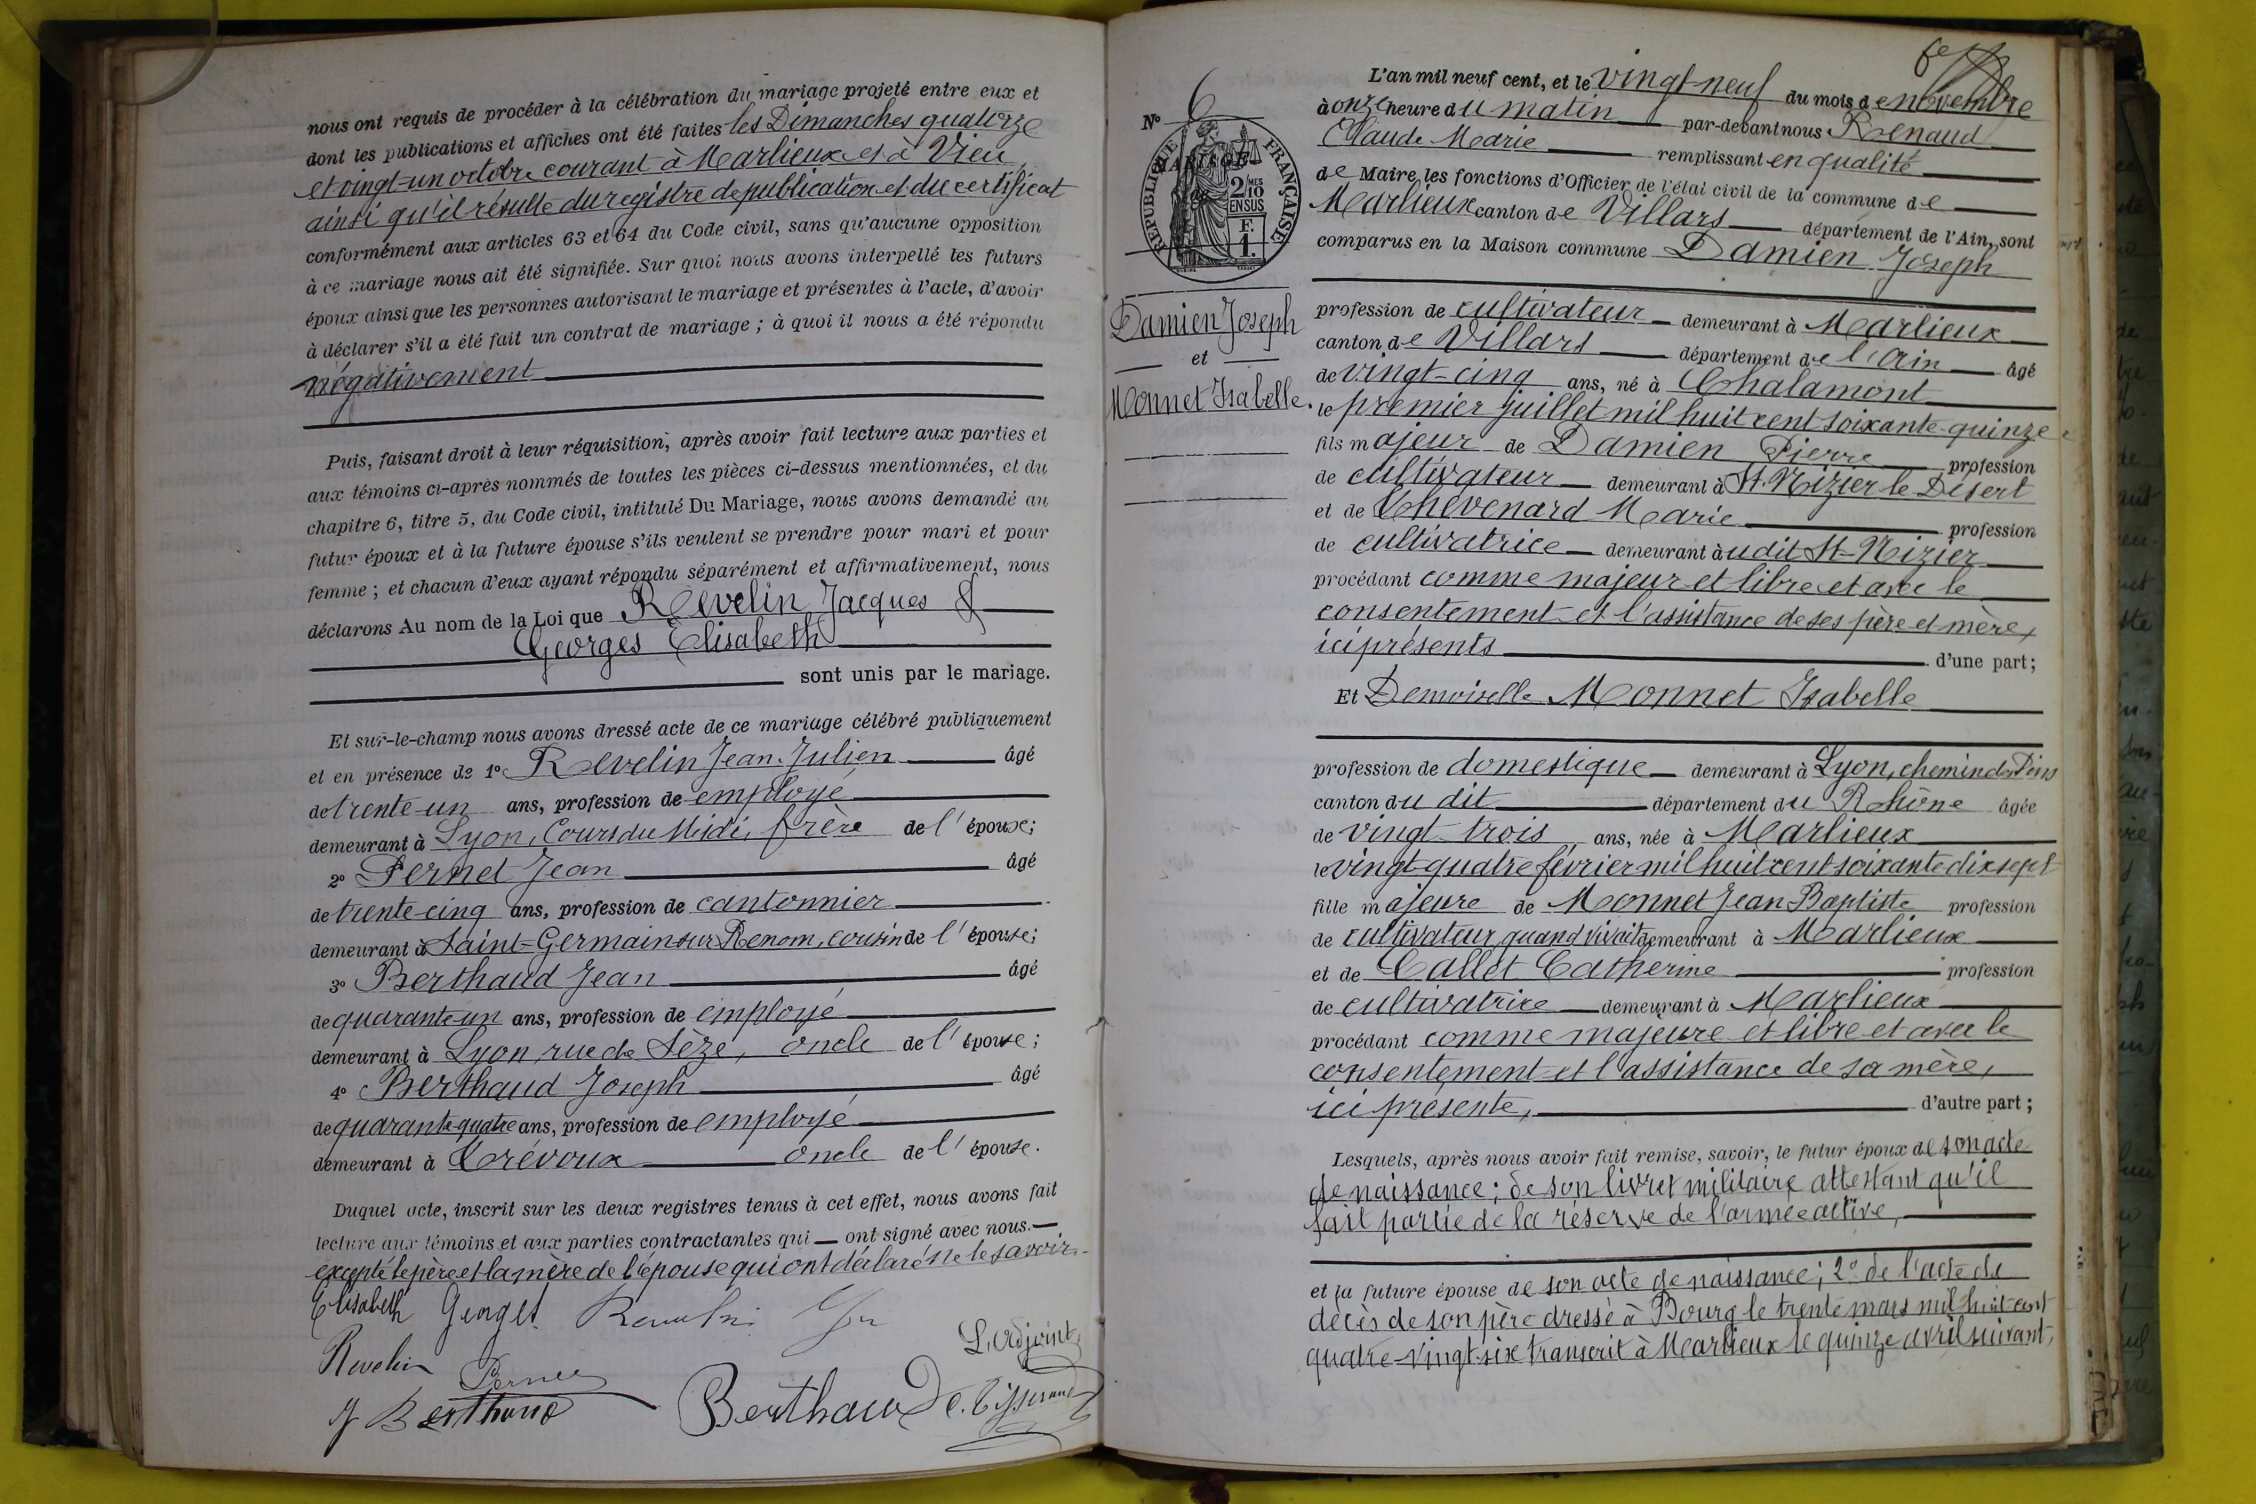 nous ont requis de procéder à la célébration du mariage projeté entre eux et
dont les publications et affiches ont été faites les Dimanches quatorze
et vingt-un octobre courant à Marlieux et à Vieu
ainsi qu'il résulte du registre de publication et du certificat
conformément aux articles 63 et 64 du Code civil, sans qu'aucune opposition
à ce mariage nous ait été signifiée. Sur quoi nous avons interpellé les futurs
époux ainsi que les personnes autorisant le mariage et présentes à l'acte, d'avoir
à déclarer s'il a été fait un contrat de mariage ; à quoi il nous a été répondu
négativement
Puis, faisant droit à leur réquisition, après avoir fait lecture aux parties et
aux témoins ci-après nommés de toutes les pièces ci-dessus mentionnées, et du
chapitre 6, titre 5, du Code civil, intitulé Du Mariage, nous avons demandé au
futur époux et à la future épouse s'ils veulent se prendre pour mari et pour
femme ; et chacun d'eux ayant répondu séparément et affirmativement, nous
déclarons Au nom de la Loi que Revelin Jacques &
Georges Elisabeth
sont unis par le mariage.
Et sur-le-champ nous avons dressé acte de ce mariage célébré publiquement
et en présence de 1º Revelin Jean Julien âgé
de trente-un ans, profession de employé
demeurant à Lyon, Cours du Midi, frère de l'épouse;
2º Pernet Jean âgé
de trente-cinq ans, profession de cantonnier
demeurant à Saint-Germain sur Renom, cousin de l'épouse;
3º Berthaud Jean âgé
de quarante-un ans, profession de employé
demeurant à Lyon, rue de Sèze, oncle de l'épouse;
4º Berthaud Joseph âgé
de quarante-quatre ans, profession de employé
demeurant à Trévoux oncle de l'épouse.
Duquel acte, inscrit sur les deux registres tenus à cet effet, nous avons fait
lecture aux témoins et aux parties contractantes qui ont signé avec nous.
excepté le père et la mère de l'épouse qui ont déclaré ne le savoir.
Elisabeth Georges
L'adjoint,
Revelin Pernet
J Berthaud Berthaud C. Tisserand
Nº 6
RÉPUBLIQUE FRANÇAISE
2/10 MES EN SUS
F. 1.
MARIAGE
de
Damien Joseph
et
Monnet Isabelle.
L'an mil neuf cent, et le vingt-neuf du mois de novembre
à onze heure du matin par-devant nous Renaud
Claude Marie remplissant en qualité
de Maire les fonctions d'Officier de l'état civil de la commune de
Marlieux canton de Villars département de l'Ain, sont
comparus en la Maison commune Damien Joseph
profession de cultivateur demeurant à Marlieux
canton de Villars département de l'Ain âgé
de vingt-cinq ans, né à Chalamont
le premier juillet mil huit cent soixante-quinze
fils majeur de Damien Pierre profession
de cultivateur demeurant à St-Nizier le Désert
et de Chevenard Marie profession
de cultivatrice demeurant audit St-Nizier
procédant comme majeur et libre et avec le
consentement et l'assistance de ses père et mère,
ici présents d'une part;
Et Demoiselle Monnet Isabelle
profession de domestique demeurant à Lyon, chemin des Pins
canton du dit département du Rhône âgée
de vingt-trois ans, née à Marlieux
le vingt-quatre février mil huit cent soixante-dix sept
fille majeure de Monnet Jean Baptiste profession
de cultivateur quand vivait demeurant à Marlieux
et de Callet Catherine profession
de cultivatrice demeurant à Marlieux
procédant comme majeure et libre et avec le
consentement et l'assistance de sa mère,
ici présente, d'autre part;
Lesquels, après nous avoir fait remise, savoir, le futur époux de son acte
de naissance; de son livret militaire attestant qu'il
fait partie de la réserve de l'armée active,
et la future épouse de son acte de naissance; 2º de l'acte de
décès de son père dressé à Bourg le trente mars mil huit cent
quatre-vingt-six transcrit à Marlieux le quinze avril suivant,